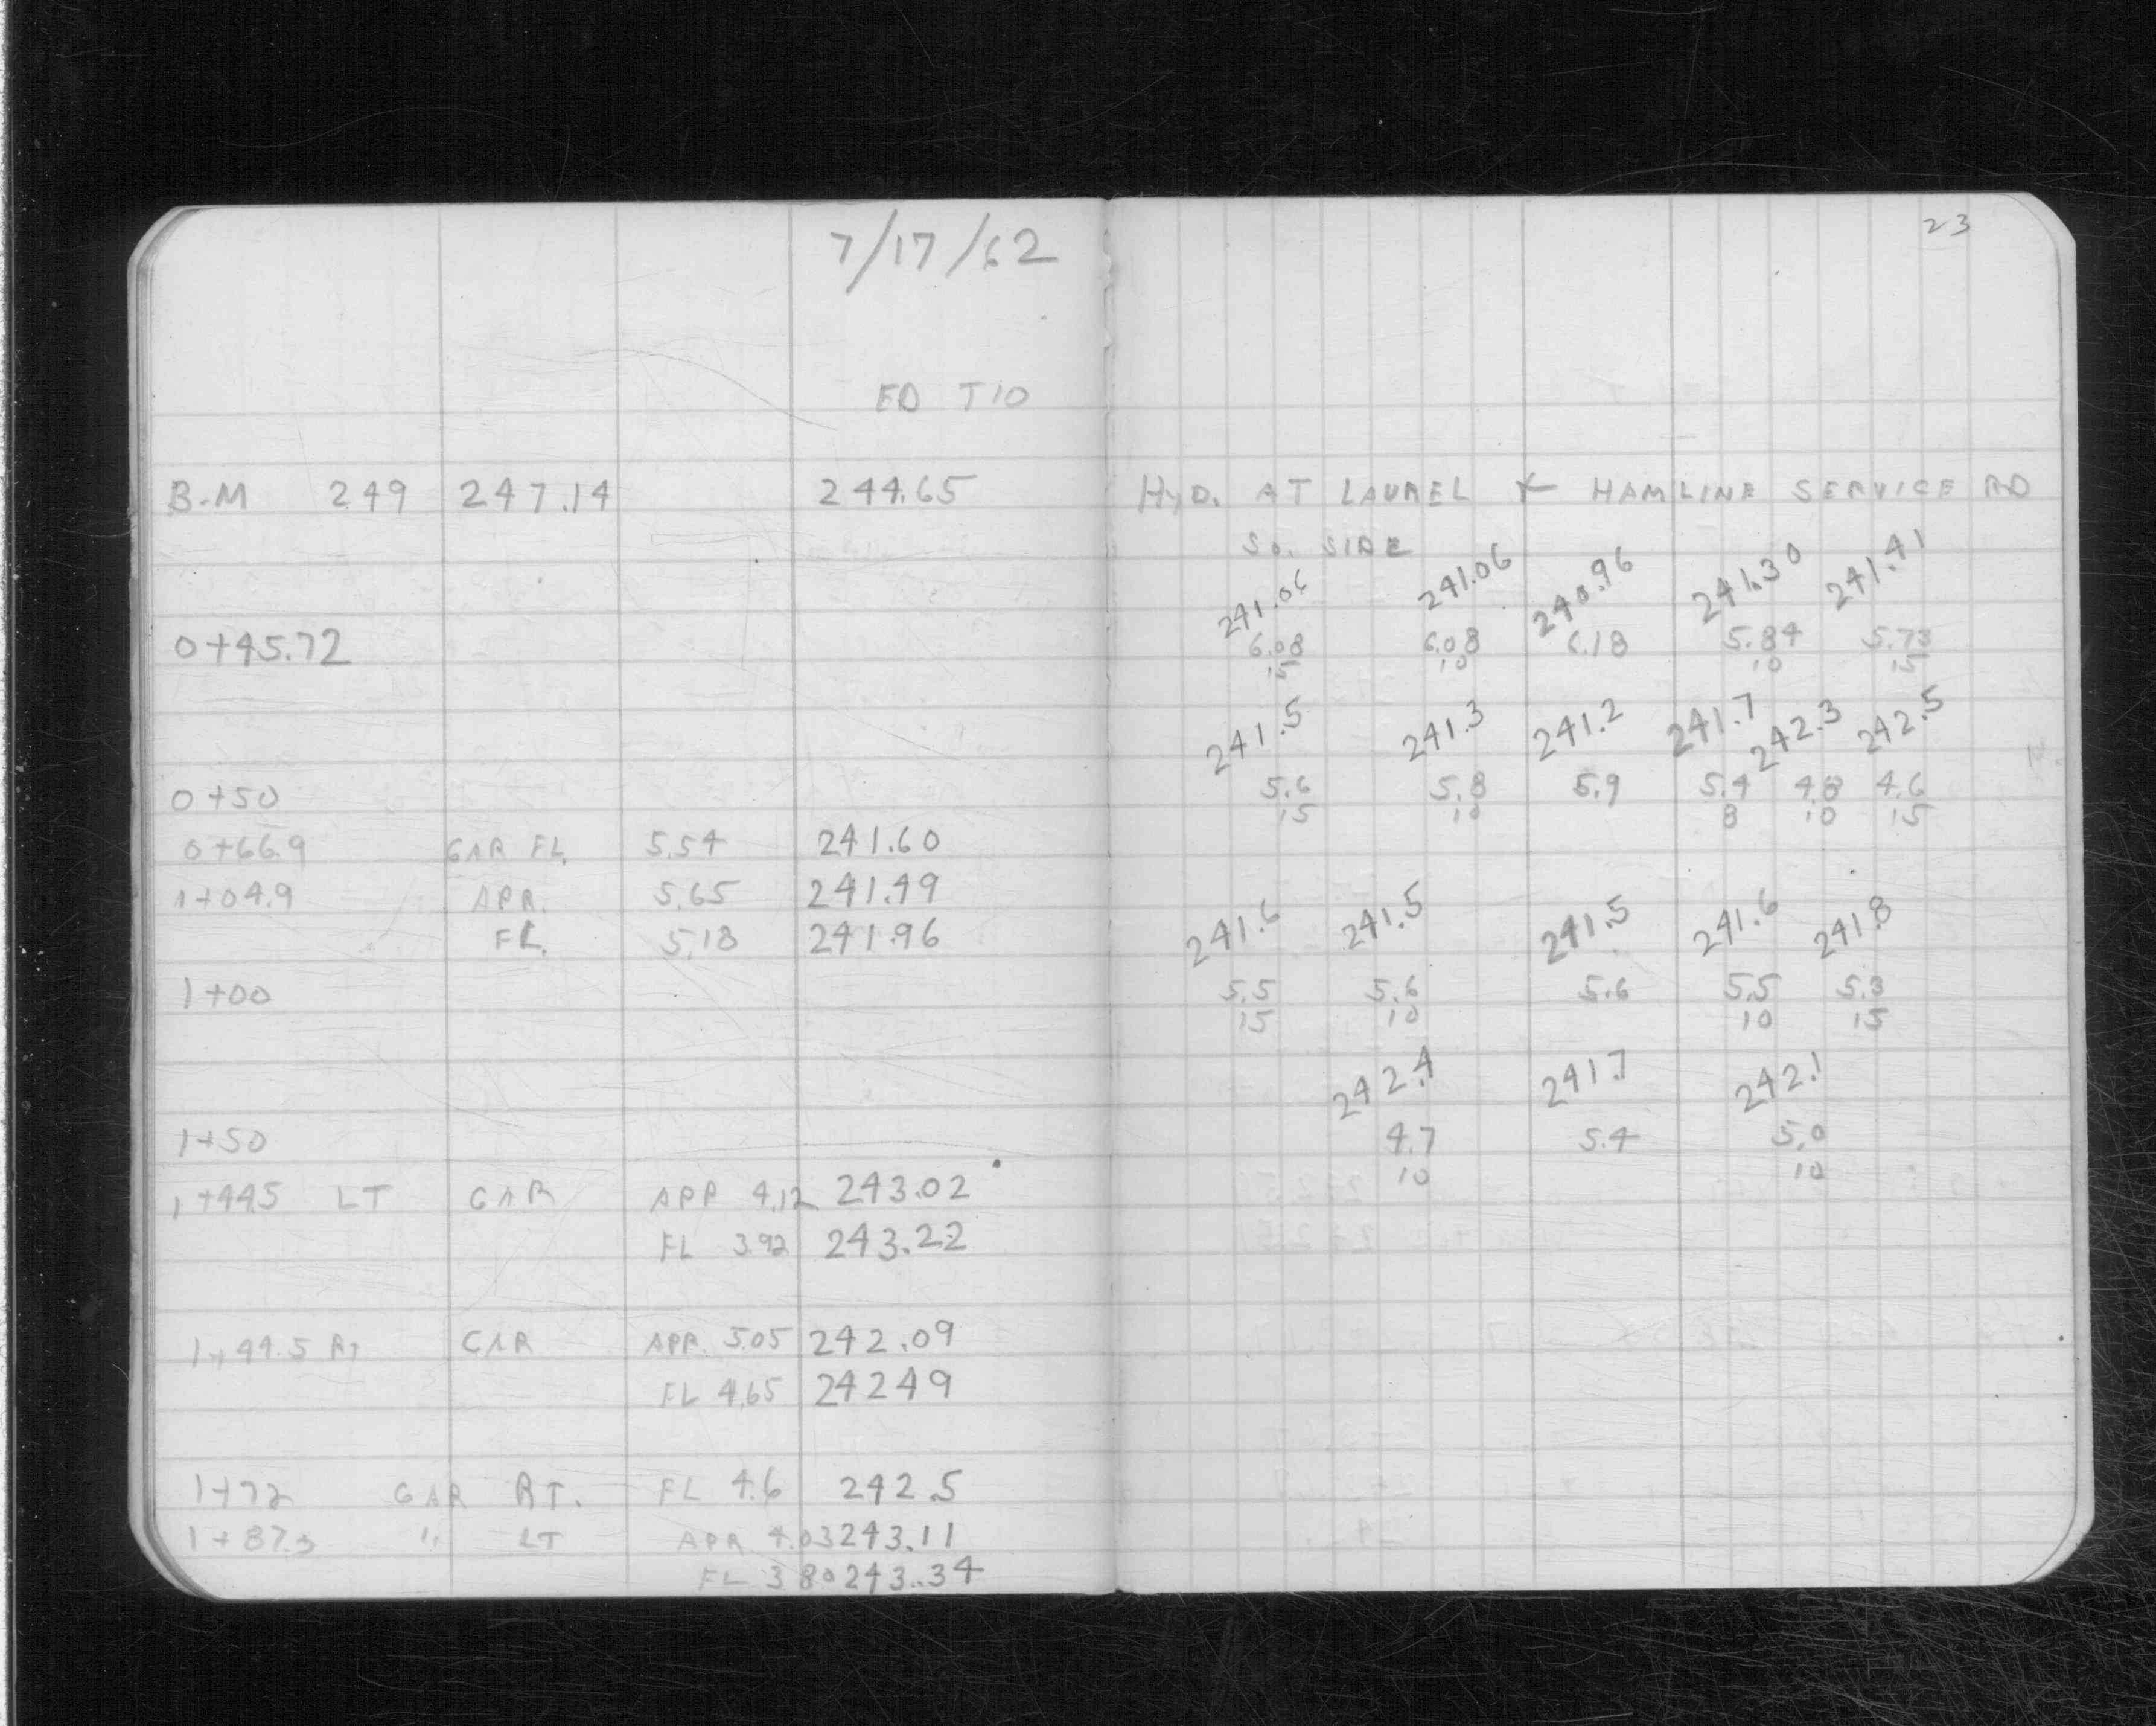 7/17/62
23
B.M 249 247.14 244.65
HYD. AT LAUREL & HAMLINE SERVICE RD
SO. SIDE
241.06 241.06 240.96 241.30 241.41
0+45.72 6.08 6.08 6.18 5.84 5.73
15 10 10 15
241.5 241.3 241.2 241.7 242.3 242.5
0+50 5.6 5.8 5.9 5.4 4.8 4.6
15 10 8 10 15
0+66.9 GAR FL. 5.54 241.60
1+04.9 APR. 5.65 241.49
FL. 5.18 241.96
241.6 241.5 241.5 241.6 241.8
1+00 5.5 5.6 5.6 5.5 5.3
15 10 10 15
242.4 241.7 242.1
1+50 4.7 5.4 5.0
10 10
1+44.5 LT GAR APP 4.12 243.02
FL 3.92 243.22
1+44.5 RT GAR APR. 5.05 242.09
FL 4.65 242 49
1+72 GAR RT. FL 4.6 242.5
1+87.3 " LT APR 4.03 243.11
FL 3.80 243.34